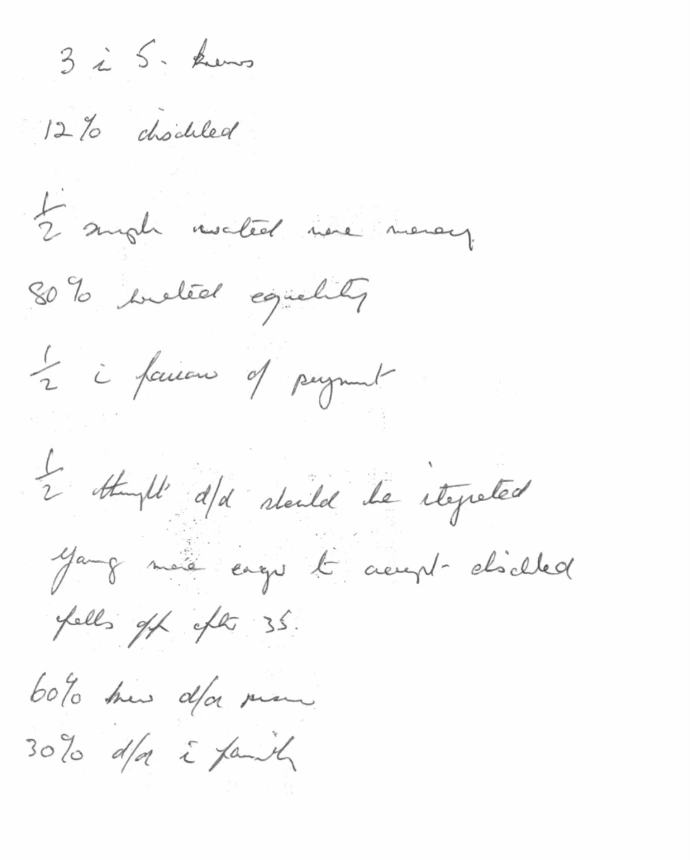 3 i 5. knows
12% disabled
1/2 sample wanted more money
80% wanted equality
1/2 i favour of payment
1/2 thought d/d should be itegrated
Young more eager to accept disabled
falls off after 35.
60% knew d/a person
30% d/a i family